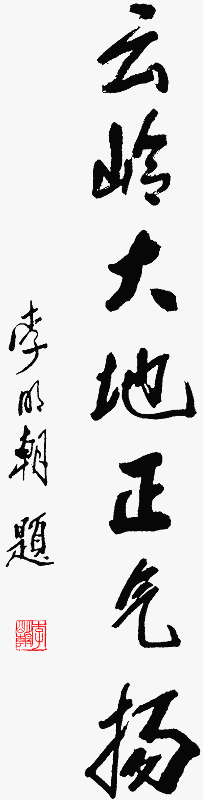 云岭大地正气扬
李明朝题